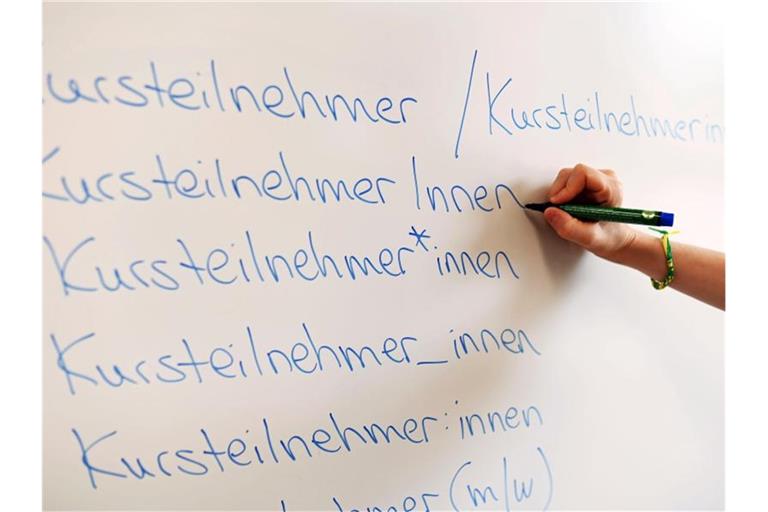 Kursteilnehmer / Kursteilnehmerin
KursteilnehmerInnen
Kursteilnehmer*innen
Kursteilnehmer_innen
Kursteilnehmer:innen
nehmer (m/w)